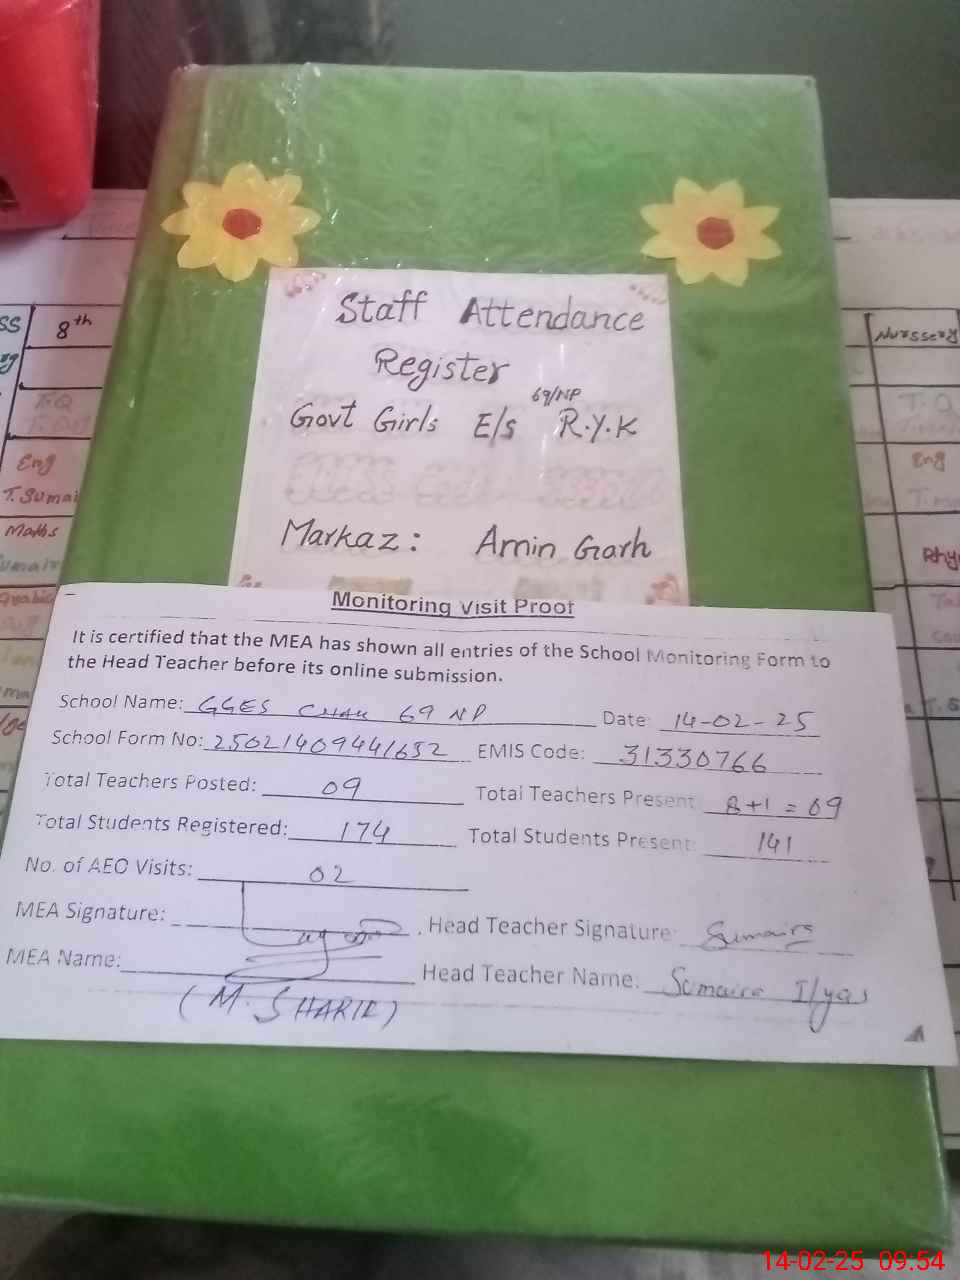 Staff Attendance
Register
69/NP
Govt Girls E/s R.Y.K
Markaz: Amin Garh
Monitoring Visit Proof
It is certified that the MEA has shown all entries of the School Monitoring Form to
the Head Teacher before its online submission.
School Name: GGES CHAK 69 NP Date: 14-02-25
School Form No: 25021409441652 EMIS Code: 31330766
Total Teachers Posted: 09 Total Teachers Present: 8+1 = 09
Total Students Registered: 174 Total Students Present: 141
No. of AEO Visits: 02
MEA Signature: Head Teacher Signature: Sumaira
MEA Name: Head Teacher Name: Sumaira Ilyas
(M. SHARIF)
8th
Eng
T. Sumai
Maths
Nurssery
T.Q
Eng
14-02-25 09:54